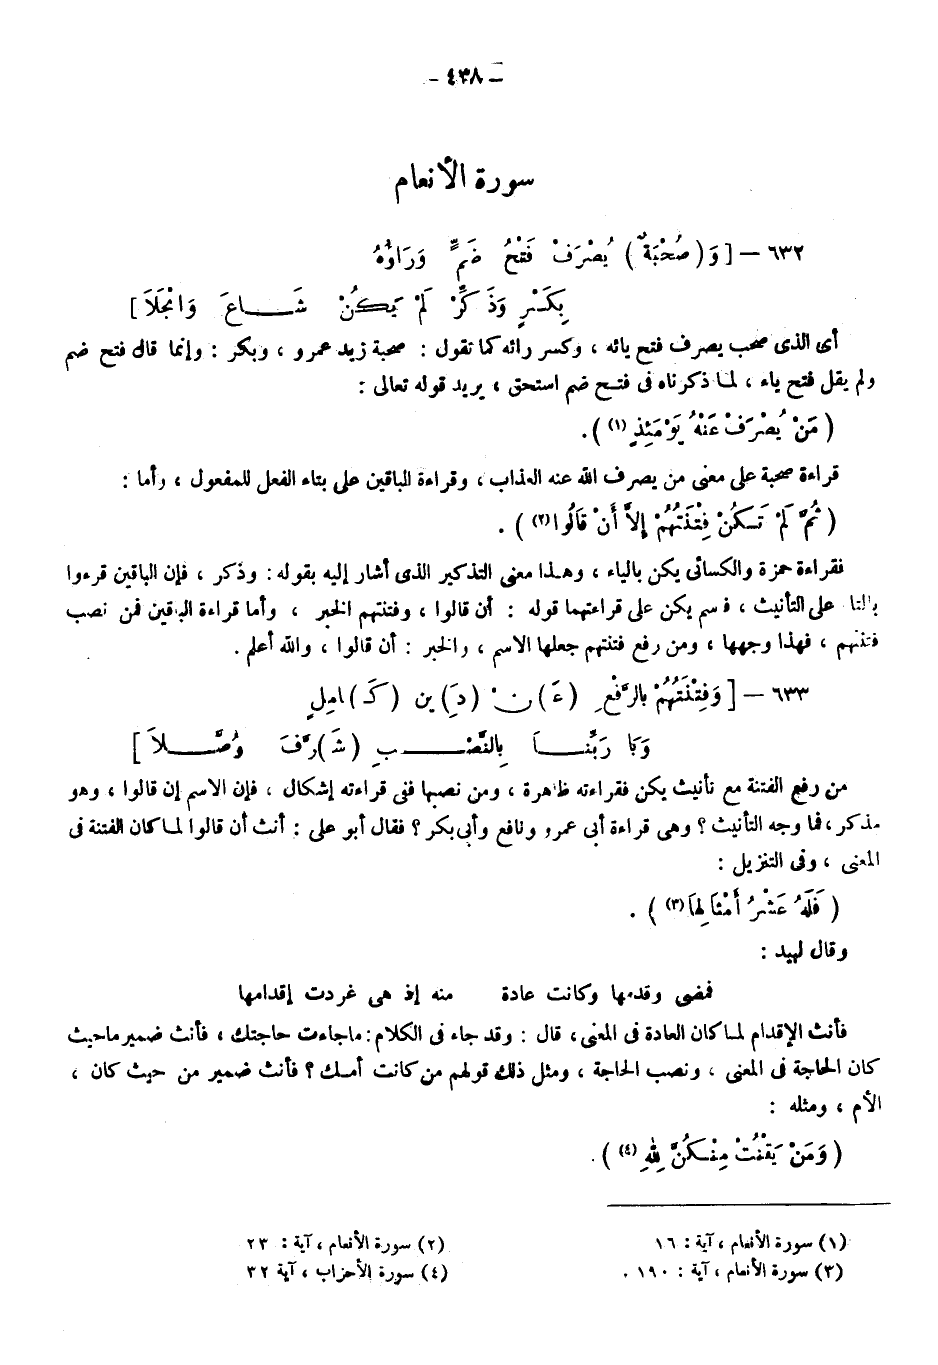 ــ ٤٣٨ ــ
سورة الأنعام
٦٣٢ – [ وَ (صُحْبَةٌ ) يُصْرَفْ فَتْحُ ضَمٍّ وَرَاؤُهُ
بِكَسْرٍ وَذَكِّرْ لَمْ يَكُنْ شَــاعَ وَانْجَلَا ]
أى الذى صحب يصرف فتح يائه ، وكسر رائه كما تقول : صحبة زيد عمرو ، وبكر : وإنما قال فتح ضم
ولم يقل فتح ياء ، لما ذكرناه فى فتح ضم استحق ، يريد قوله تعالى :
( مَنْ يُصْرَفْ عَنْهُ يَوْمَئِذٍ (١) ) .
قراءة صحبة على معنى من يصرف الله عنه العذاب ، وقراءة الباقين على بناء الفعل للمفعول ، وأما :
( ثُمَّ لَمْ تَكُنْ فِتْنَتُهُمْ إِلاَّ أَنْ قَالُوا (٢) ) .
فقراءة حمزة والكسائى يكن بالياء ، وهذا معنى التذكير الذى أشار إليه بقوله : وذكر ، فإن الباقين قرءوا
بالتا على التأنيث ، فاسم يكن على قراءتهما قوله : أن قالوا ، وفتنتهم الخبر ، وأما قراءة الباقين فمن نصب
فتنتهم ، فهذا وجهها ، ومن رفع فتنتهم جعلها الاسم ، والخبر : أن قالوا ، والله أعلم .
٦٣٣ – [ وَفِتْنَتُهُمْ بِالرَّفْعِ (عَ)نْ (دِ)ينِ (كَـ)امِلٍ
وَبَا رَبِّنَــا بِالنَّصْــبِ (شَـ)رَّفَ وُصَّــلاَ ]
من رفع الفتنة مع تأنيث يكن فقراءته ظاهرة ، ومن نصبها ففى قراءته إشكال ، فإن الاسم إن قالوا ، وهو
مذكر ، فما وجه التأنيث ؟ وهى قراءة أبى عمرو ونافع وأبى بكر ؟ فقال أبو على : أنث أن قالوا لما كان الفتنة فى
المعنى ، وفى التنزيل :
( فَلَهُ عَشْرُ أَمْثَالِهَا (٣) ) .
وقال لبيد :
فمضى وقدمها وكانت عادة منه إذ هى غردت إقدامها
فأنث الإقدام لما كان العادة فى المعنى ، قال : وقد جاء فى الكلام : ماجاءت حاجتك ، فأنث ضمير ماحيث
كان الحاجة فى المعنى ، ونصب الحاجة ، ومثل ذلك قولهم من كانت أمـك ؟ فأنث ضمير من حيث كان ،
الأم ، ومثله :
( وَمَنْ يَقْنُتْ مِنْكُنَّ لِلهِ (٤) ) .
(١) سورة الأنعام ، آية : ١٦
(٢) سورة الأنعام ، آية : ٢٣
(٣) سورة الأنعام ، آية : ١٩٠ .
(٤) سورة الأحزاب ، آية ٣٢